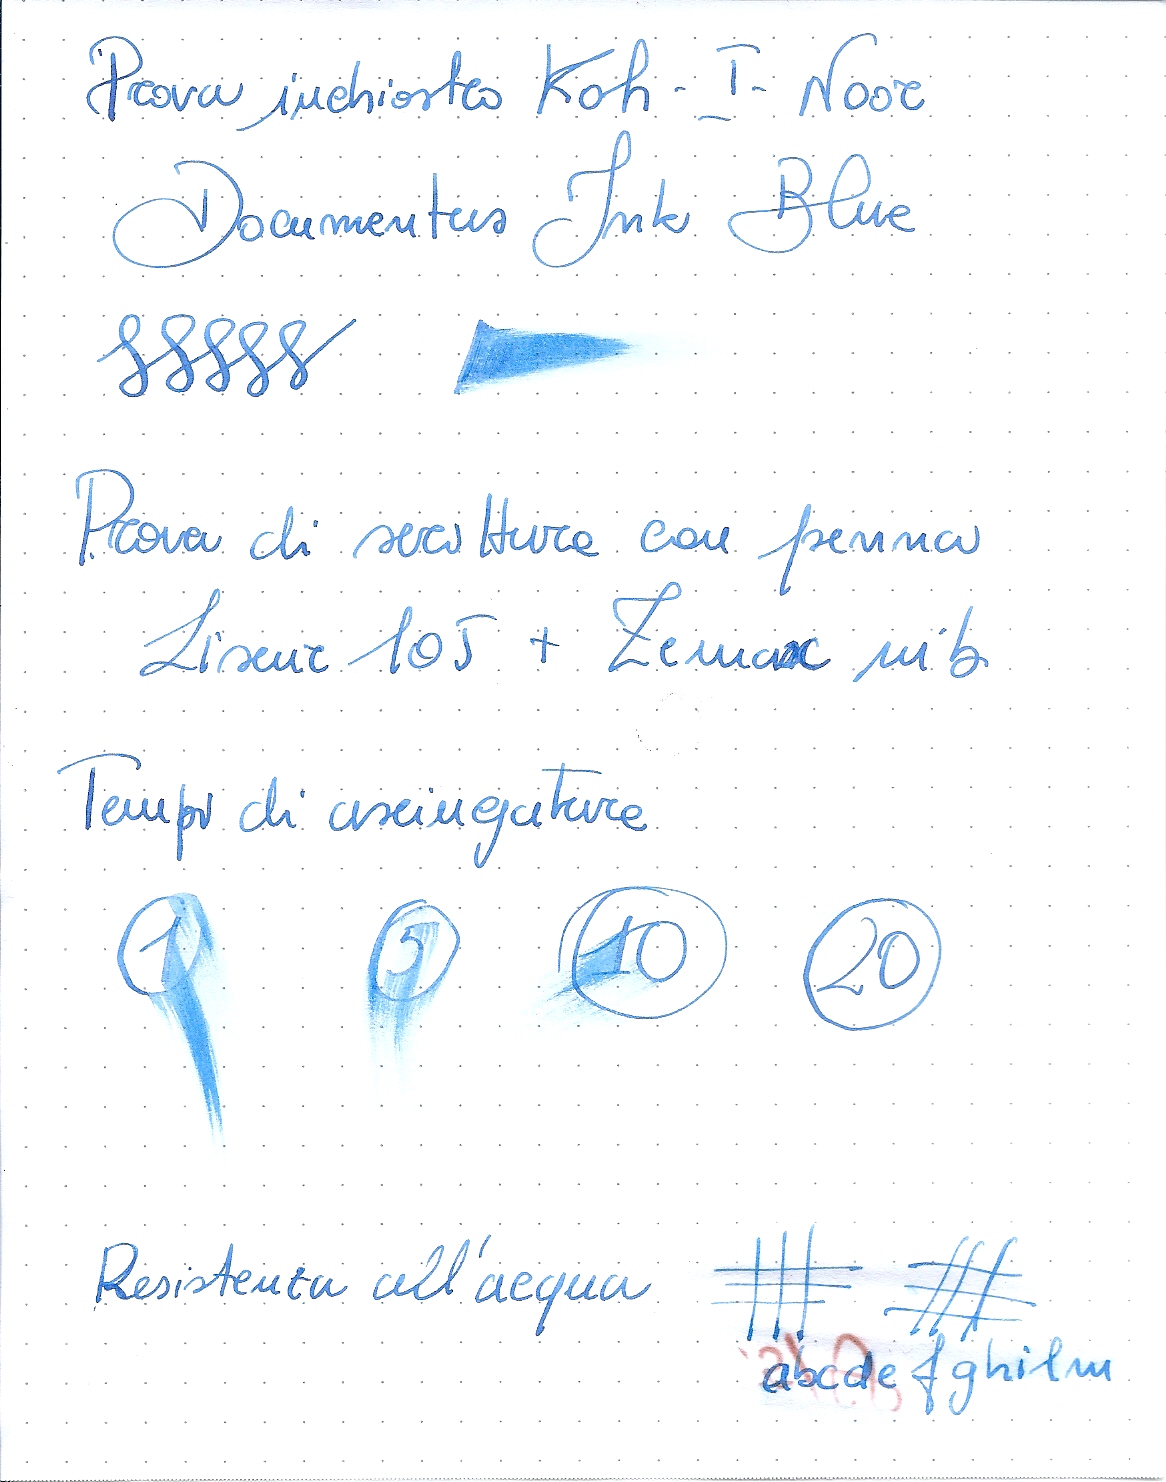 Prova inchiostro Koh-I-Noor
Documentus Ink Blue
Prova di scrittura con penna
Liseur 105 + Zemax nib
Tempi di asciugatura
1 5 10 20
Resistenza all'acqua
abcdefghilm